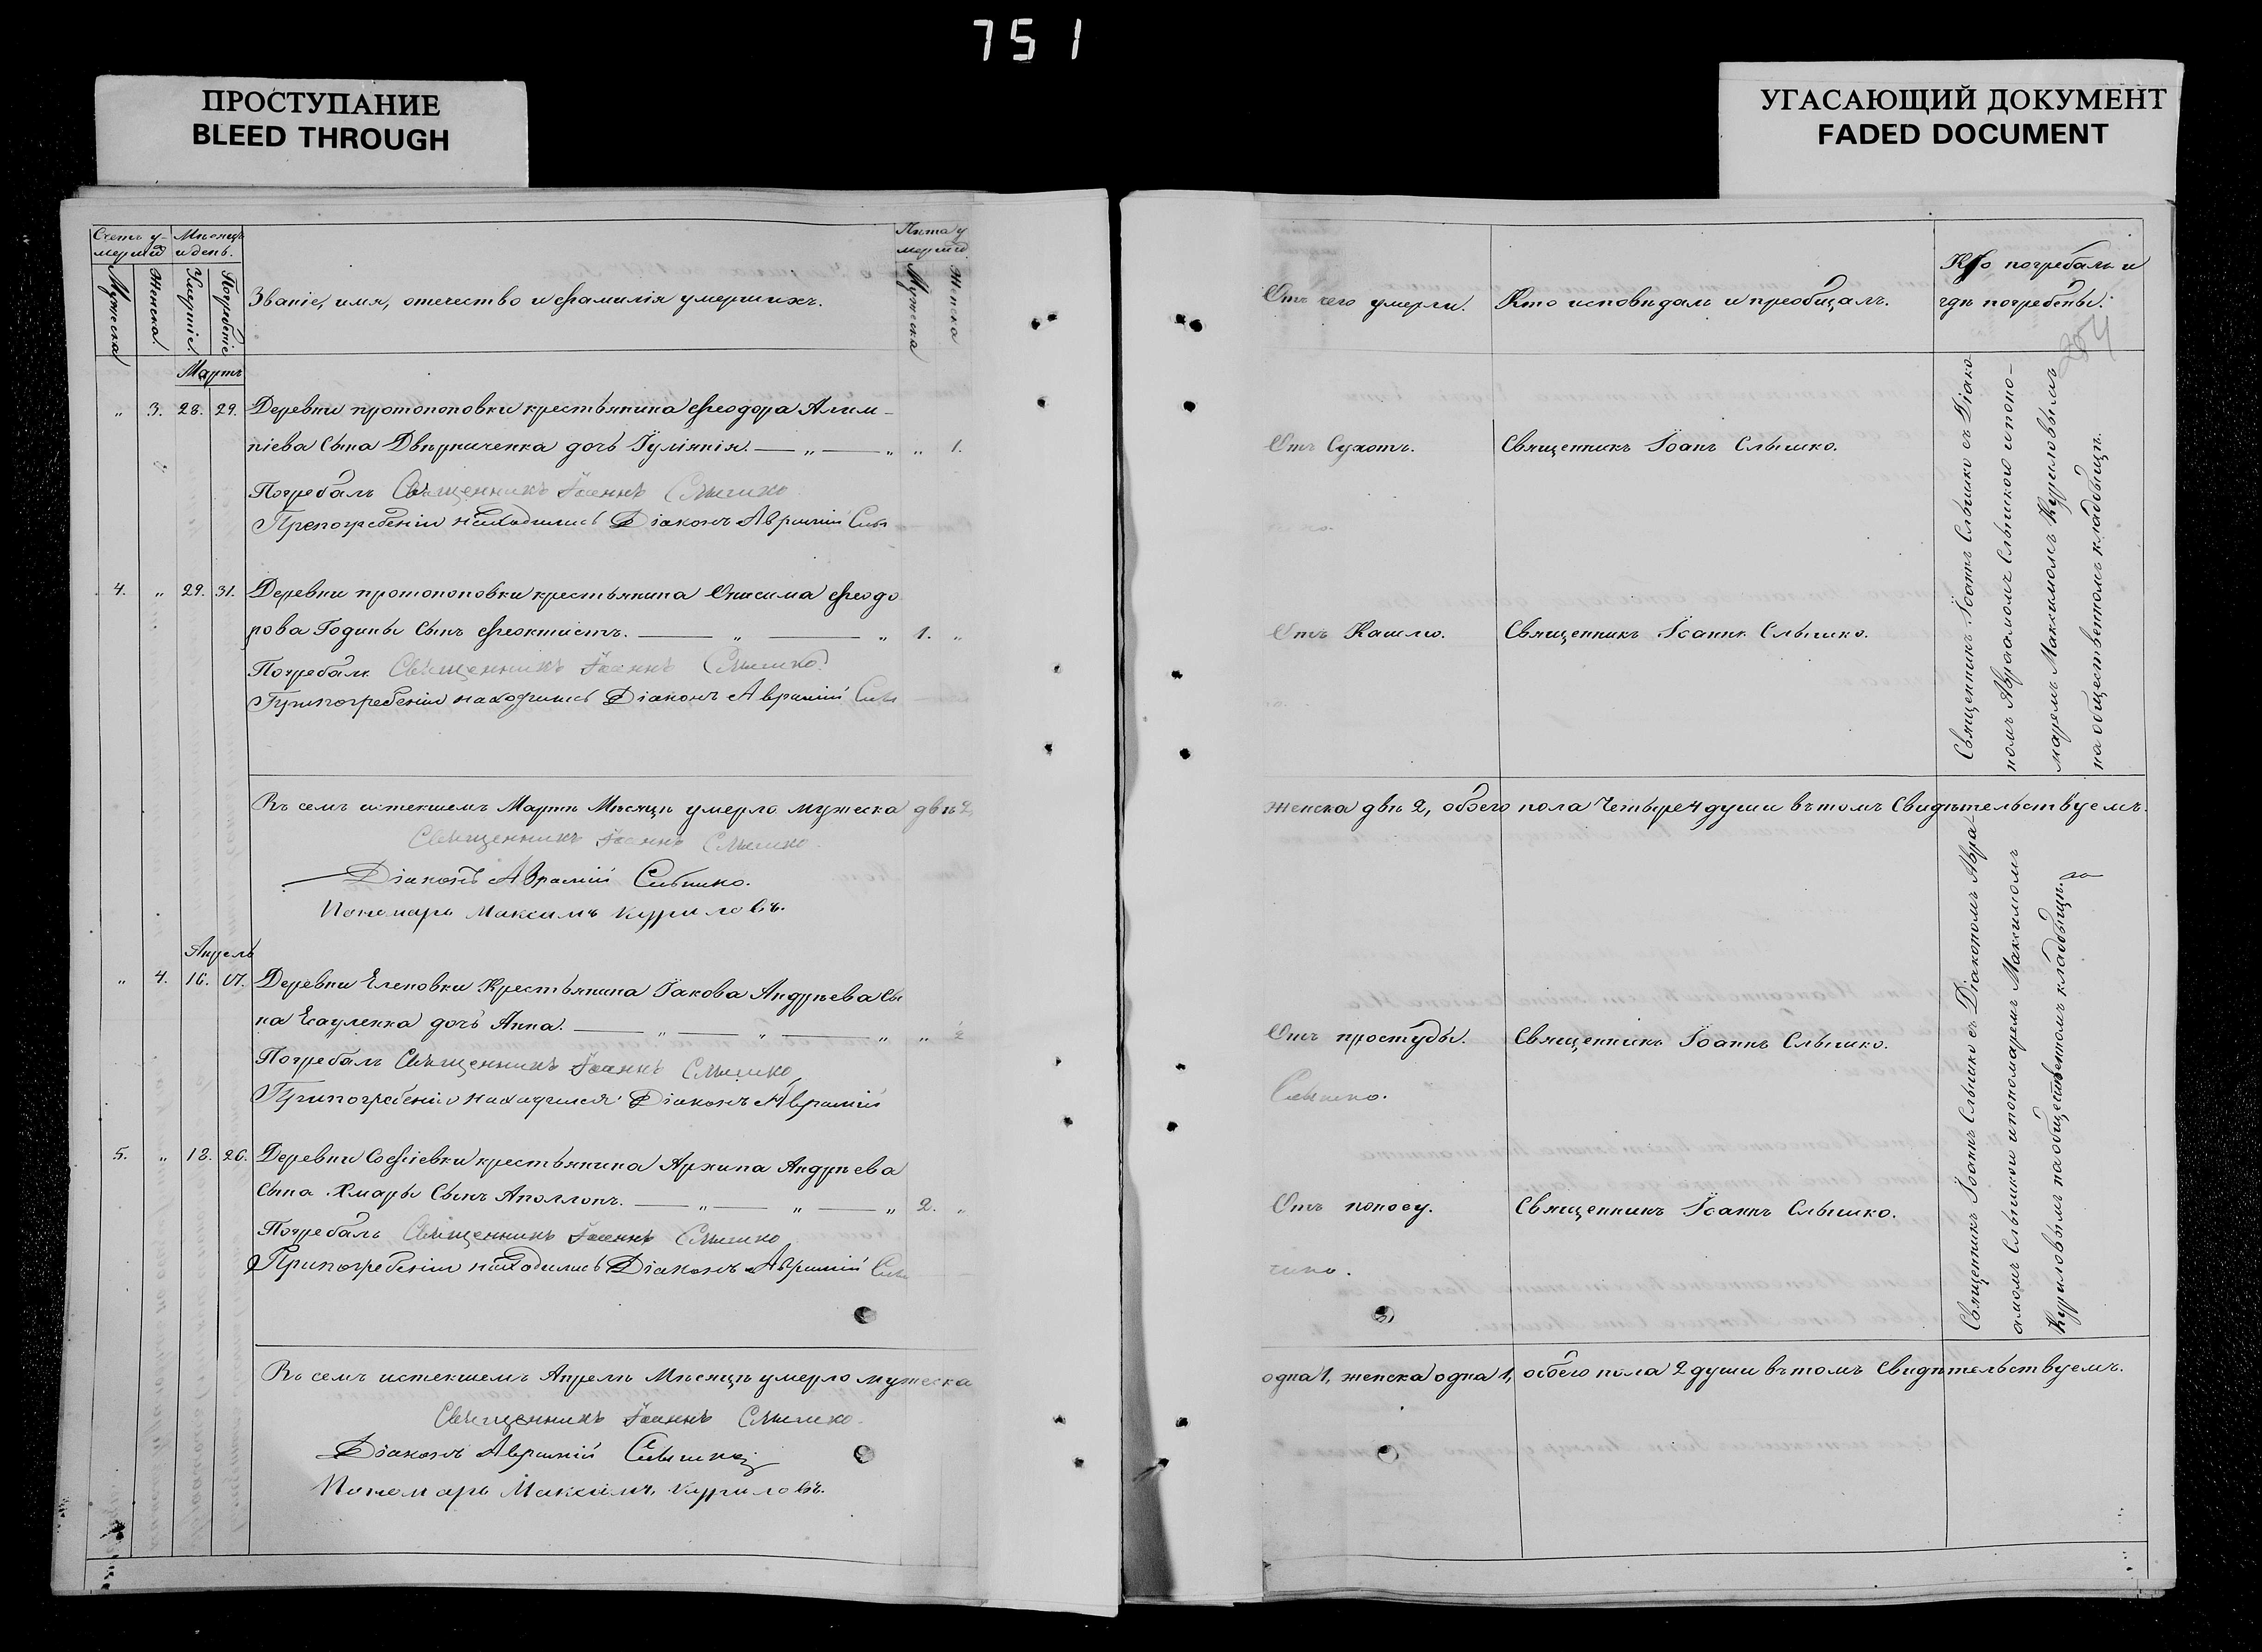 751
ПРОСТУПАНИЕ
BLEED THROUGH
УГАСАЮЩИЙ ДОКУМЕНТ
FADED DOCUMENT
Счетъ у-
мершид
Мѣсяцъ
и день.
Мужеска
Женска.
Умертіе
Погребтіе
Званіе, имя, отечество и фамилія умершихъ.
Лѣта у
мершид.
Мужеска
Женска
Отъ чего умерли.
Кто исповѣдалъ и пріобщалъ.
Кто погребалъ и
гдѣ погребены.
204
Мартъ
„ 3. 28. 29. Деревни протопоповки крестьянина Феодора Алим-
піева сына Двѣрниченка дочь Іуліянія. — „ — „ „ 1.
Отъ Сухотъ. Священникъ Іоанъ Слышко.
Погребалъ Священникъ Іоаннъ Слышко
Припогребеніи находились Діаконъ Аврамій Слы
шко.
4. „ 29. 31. Деревни протопоповки крестьянина Онисима Феодо
рова Годины сынъ Феоктистъ. — „ — „ 1. „
Отъ Кашлю. Священникъ Іоаннъ Слышко.
Погребалъ Священникъ Іоаннъ Слышко.
Припогребеніи находились Діаконъ Аврамій Слы
Священникъ Іоаннъ Слышко съ Діако-
номъ Авраамомъ Слышкою и поно-
маремъ Максимомъ Куриловымъ
на общественномъ кладбищѣ.
Въ семъ истекшемъ Мартѣ Мѣсяцѣ умерло мужеска двѣ 2, женска двѣ 2, обоего пола четыре 4 души вътомъ Свидѣтельствуемъ.
Священникъ Іоаннъ Слышко.
Діаконъ Аврамій Слышко.
Пономарь Максимъ Куриловъ.
Апрель
„ 4. 16. 17. Деревни Еленовки Крестьянина Іакова Андрѣева Сы
на Есауленка дочь Анна. — „ — „ — „ „ 2
Отъ простуды. Священникъ Іоаннъ Слышко.
Погребалъ Священникъ Іоаннъ Слышко
Припогребеніи находился Діаконъ Аврамій
Слышко.
5. „ 18. 20. Деревни Софіевки крестьянина Архипа Андрѣева
Сына Хмары Сынъ Аполлонъ. — „ — „ — „ 2. „
Отъ поносу. Священникъ Іоаннъ Слышко.
Погребалъ Священникъ Іоаннъ Слышко
Припогребеніи находились Діаконъ Аврамій Слы
шко.
Священникъ Іоаннъ Слышко съ Діакономъ Авра-
амомъ Слышкою и пономаремъ Максимомъ
Куриловымъ на общественномъ кладбищѣ.
Въ семъ истекшемъ Апрелѣ Мѣсяцѣ умерло мужеска одна 1, женска одна 1, обоего пола 2 души вътомъ Свидѣтельствуемъ.
Священникъ Іоаннъ Слышко.
Діаконъ Аврамій Слышко
Пономарь Максимъ Куриловъ.